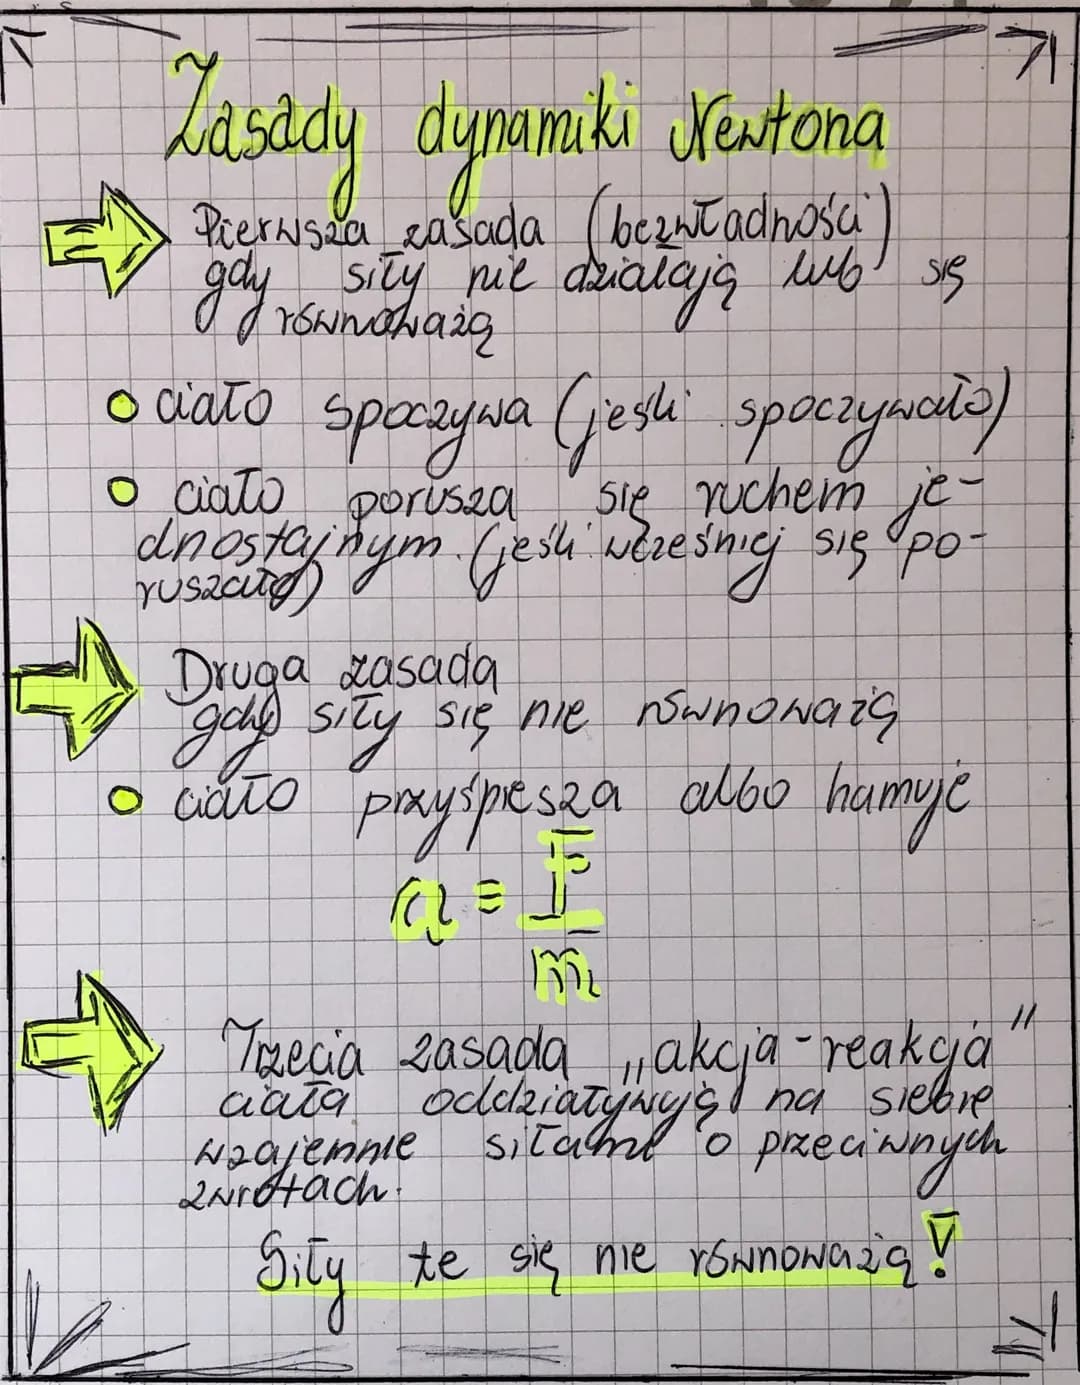 Zasady dynamiki Newtona
Pierwsza zasada (bezwładności)
gdy siły nie działają lub się
równoważą
ciało spoczywa (jeśli spoczywało)
ciało porusza się ruchem je-
dnostajnym. (jeśli wcześniej się po-
ruszało)
Druga zasada
gdy siły się nie równoważą
ciało przyśpiesza albo hamuje
a = F
m
Trzecia zasada „akcja-reakcja"
ciała oddziaływują na siebie
wzajemnie siłami o przeciwnych
zwrotach.
Siły te się nie równoważą!